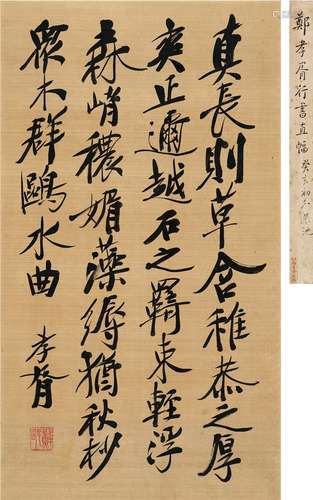 真長則草含稚恭之厚
爽正邇越石之羈束輕浮
森峭穠媚藻縟猶秋杪
眾木群鷗水曲
孝胥
鄭孝胥行書直幅